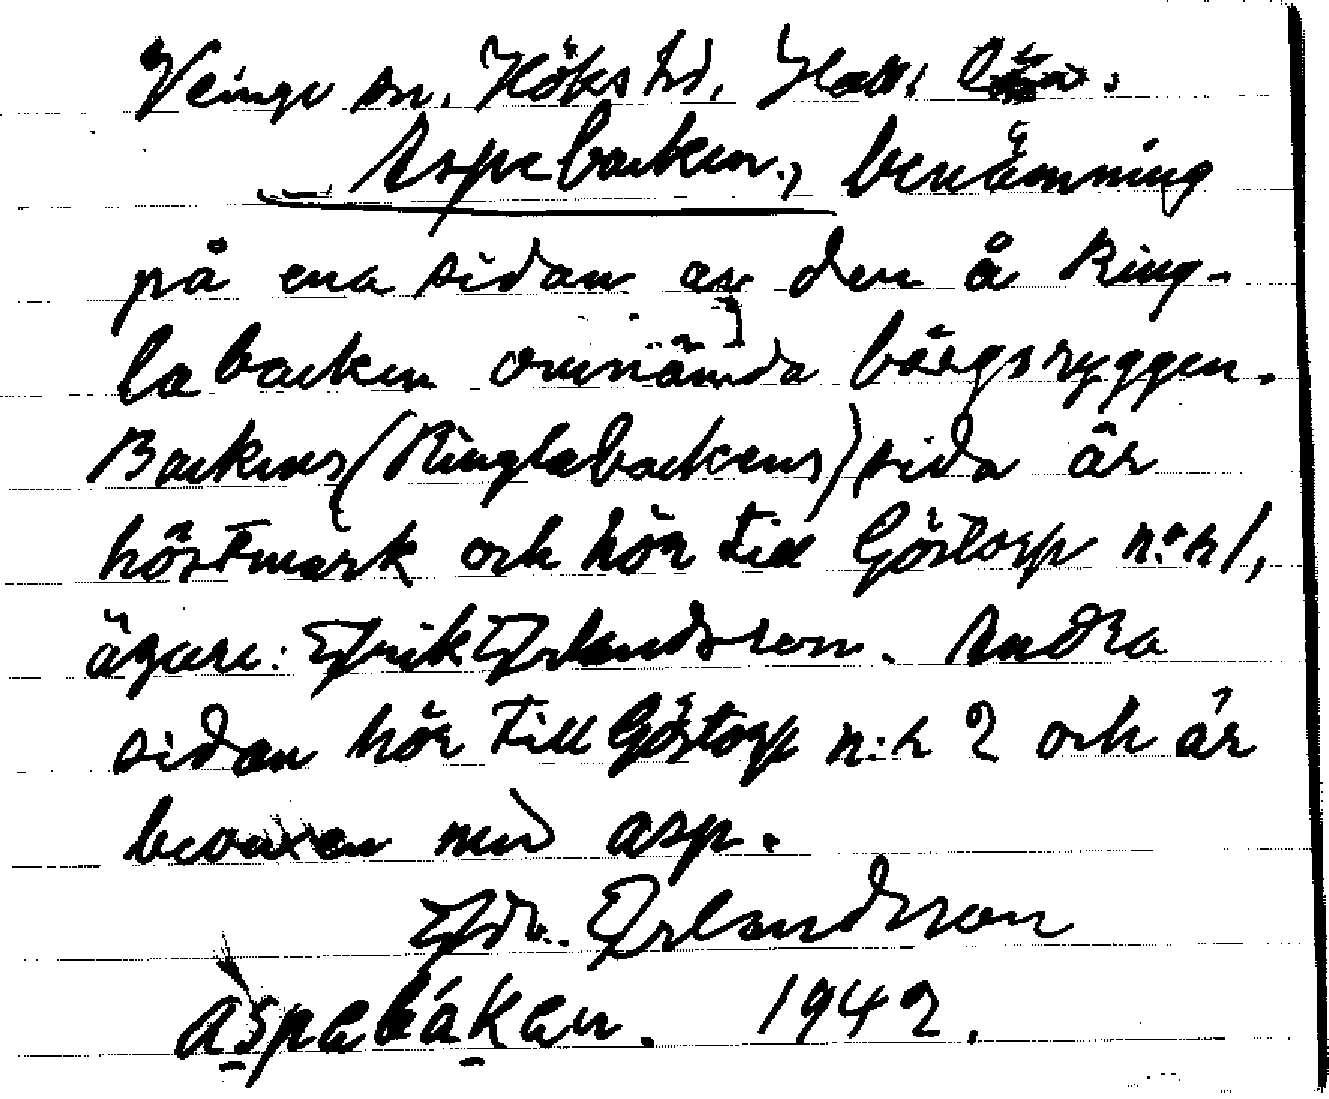 Veinge sn. Höks hd, Hall. län.
Aspebacken, benämning
på ena sidan av den å Ring-
labacken omnämda bärgsryggen.
Backens (Ringlabackens) sida är
höstmark och hör till Göstorp n:r 1,
ägare: Erik Erlandsson. Andra
sidan hör till Göstorp n:r 2 och är
bevoxen med asp.
Edv. Erlandsson
aspebákan. 1942.